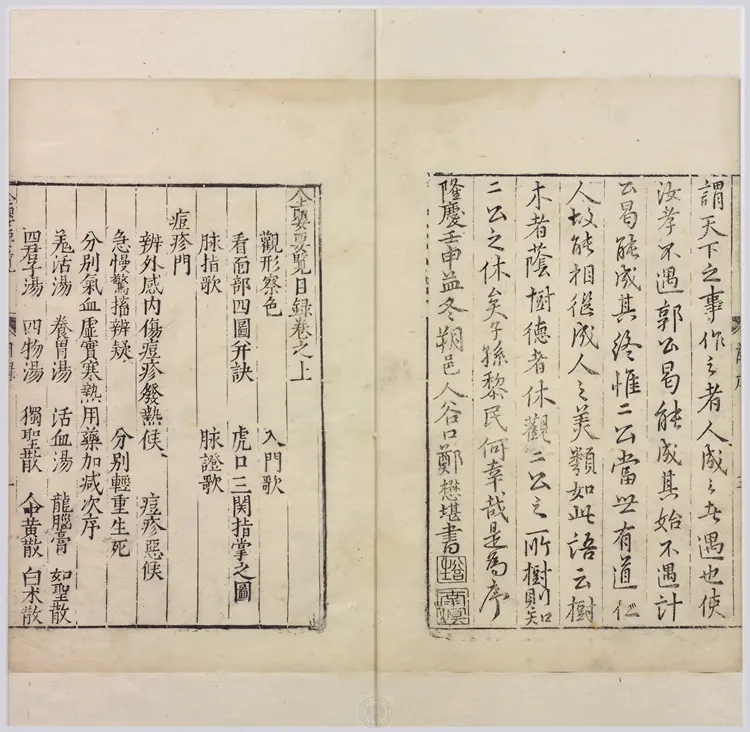 謂天下之事作之者人成之者遇也使
汝孝不遇郭公曷能成其始不遇計
公曷能成其終惟二公當世有道仁
人故能相從成人之美類如此語云樹
木者蔭樹德者休觀二公之所樹則知
二公之休矣子孫黎民何幸哉是為序
隆慶壬申孟冬朔邑人谷口鄭懋堪書
全嬰要覽目錄卷之上
觀形察色 入門歌
看面部四圖并訣 虎口三関指掌之圖
脉指歌 脉證歌
痘疹門
辨外感内傷痘疹發熱候 痘疹惡候
急慢驚搐辨疑 分別輕重生死
分別氣血虛實寒熱用藥加减次序
羗活湯 養胃湯 活血湯 龍腦膏 如聖散
四君子湯 四物湯 獨聖散 人中黄散 白术散